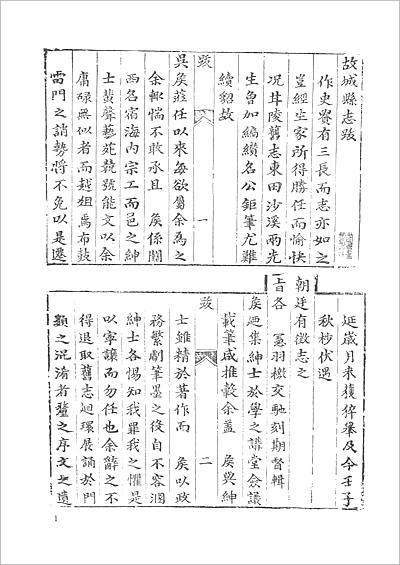 故城縣志跋
作史貴有三長而志亦如之
豈經生家所得勝任而愉快
況甘陵舊志東田沙溪兩先
生魯加編纘名公鉅筆尤難
續貂故
跋
一
吳矦蒞任以來每欲屬余爲之
余輒惴不敢承且 矦係關
西名宿海内宗工而邑之紳
士蜚聲藝苑競號能文以余
庸碌無似者而越俎焉布鼓
雷門之誚勢將不免以是遷
延歲月未獲猝舉及今壬子
秋杪伏遇
朝廷有徵志之
旨各 憲羽檄交馳刻期督輯
矦廼集紳士於學之講堂僉議
載筆咸推轂余蓋 矦與紳
跋
二
士雖精於著作而 矦以政
務繁劇筆墨之役自不容溷
紳士各惕知我罪我之懼是
以寧讓而勿任也余辭之不
得退取舊志廻環展誦於門
類之淆者釐之序文之遺
1